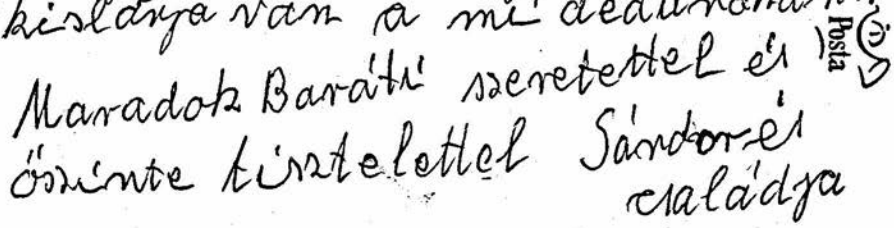 kislánya van a mi dédunokánk
Maradok Baráti szeretettel és
őszinte tisztelettel Sándor és
családja
Posta